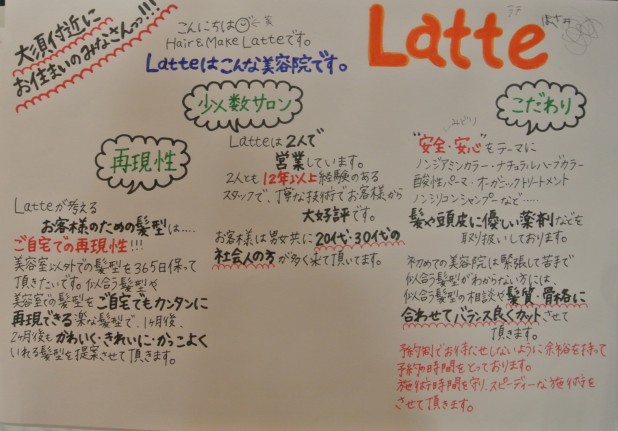 大須付近に
お住まいのみなさんっっ!!!
こんにちは
Hair & Make Latteです。
Latteはこんな美容院です。
Latte
再現性
Latteが考える
お客様のための髪型は....
ご自宅での再現性!!!
美容室以外での髪型を365日保って
頂きたいです。似合う髪型や
美容室での髪型をご自宅でもカンタンに
再現できる楽な髪型で、1ヶ月後、
2ヶ月後もかわいく・きれいに・かっこよく
いれる髪型を提案させて頂きます。
少人数サロン
Latteは2人で
営業しています。
2人とも12年以上経験のある
スタッフで、丁寧な技術でお客様から
大好評です。
お客様は男女共に20代、30代の
社会人の方が多く来て頂いてます。
こだわり
"安全・安心"をテーマに
ノンジアミンカラー・ナチュラルハーブカラー
酸性パーマ・オーガニックトリートメント
ノンシリコンシャンプーなど.....
髪や頭皮に優しい薬剤などを
取り扱いしております。
初めての美容院は緊張して苦手
似合う髪型がわからない方には
似合う髪型の相談や髪質・骨格に
合わせてバランス良くカットさせて
頂きます。
予約制でお待たせしないように余裕を持って
予約時間をとっております。
施術時間を守り、スピーディーな施術を
させて頂きます。